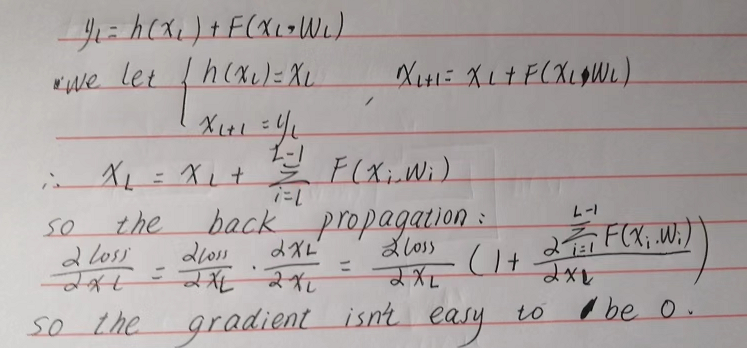 y_l = h(x_l) + F(x_l, W_l)
we let { h(x_l) = x_l , x_{l+1} = x_l + F(x_l, W_l)
x_{l+1} = y_l
∴ x_L = x_l + \sum_{i=l}^{L-1} F(x_i, W_i)
so the back propagation:
\frac{∂loss}{∂x_l} = \frac{∂loss}{∂x_L} · \frac{∂x_L}{∂x_l} = \frac{∂loss}{∂x_L} (1 + \frac{∂\sum_{i=1}^{L-1} F(x_i, W_i)}{∂x_l})
so the gradient isn't easy to be 0.